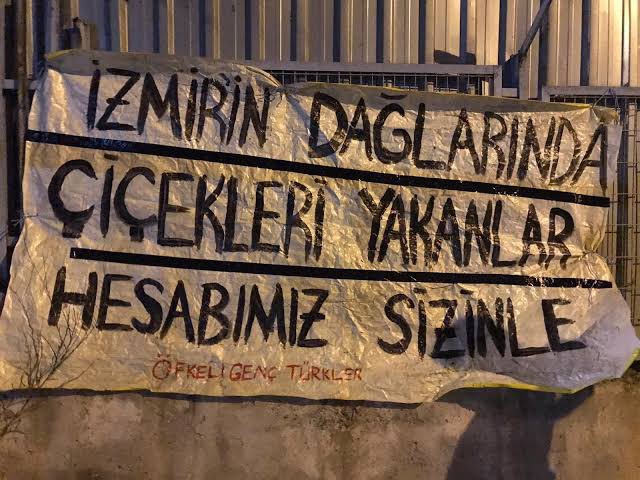 İZMİR'İN DAĞLARINDA
ÇİÇEKLERİ YAKANLAR
HESABIMIZ SİZİNLE
ÖFKELİ GENÇ TÜRKLER